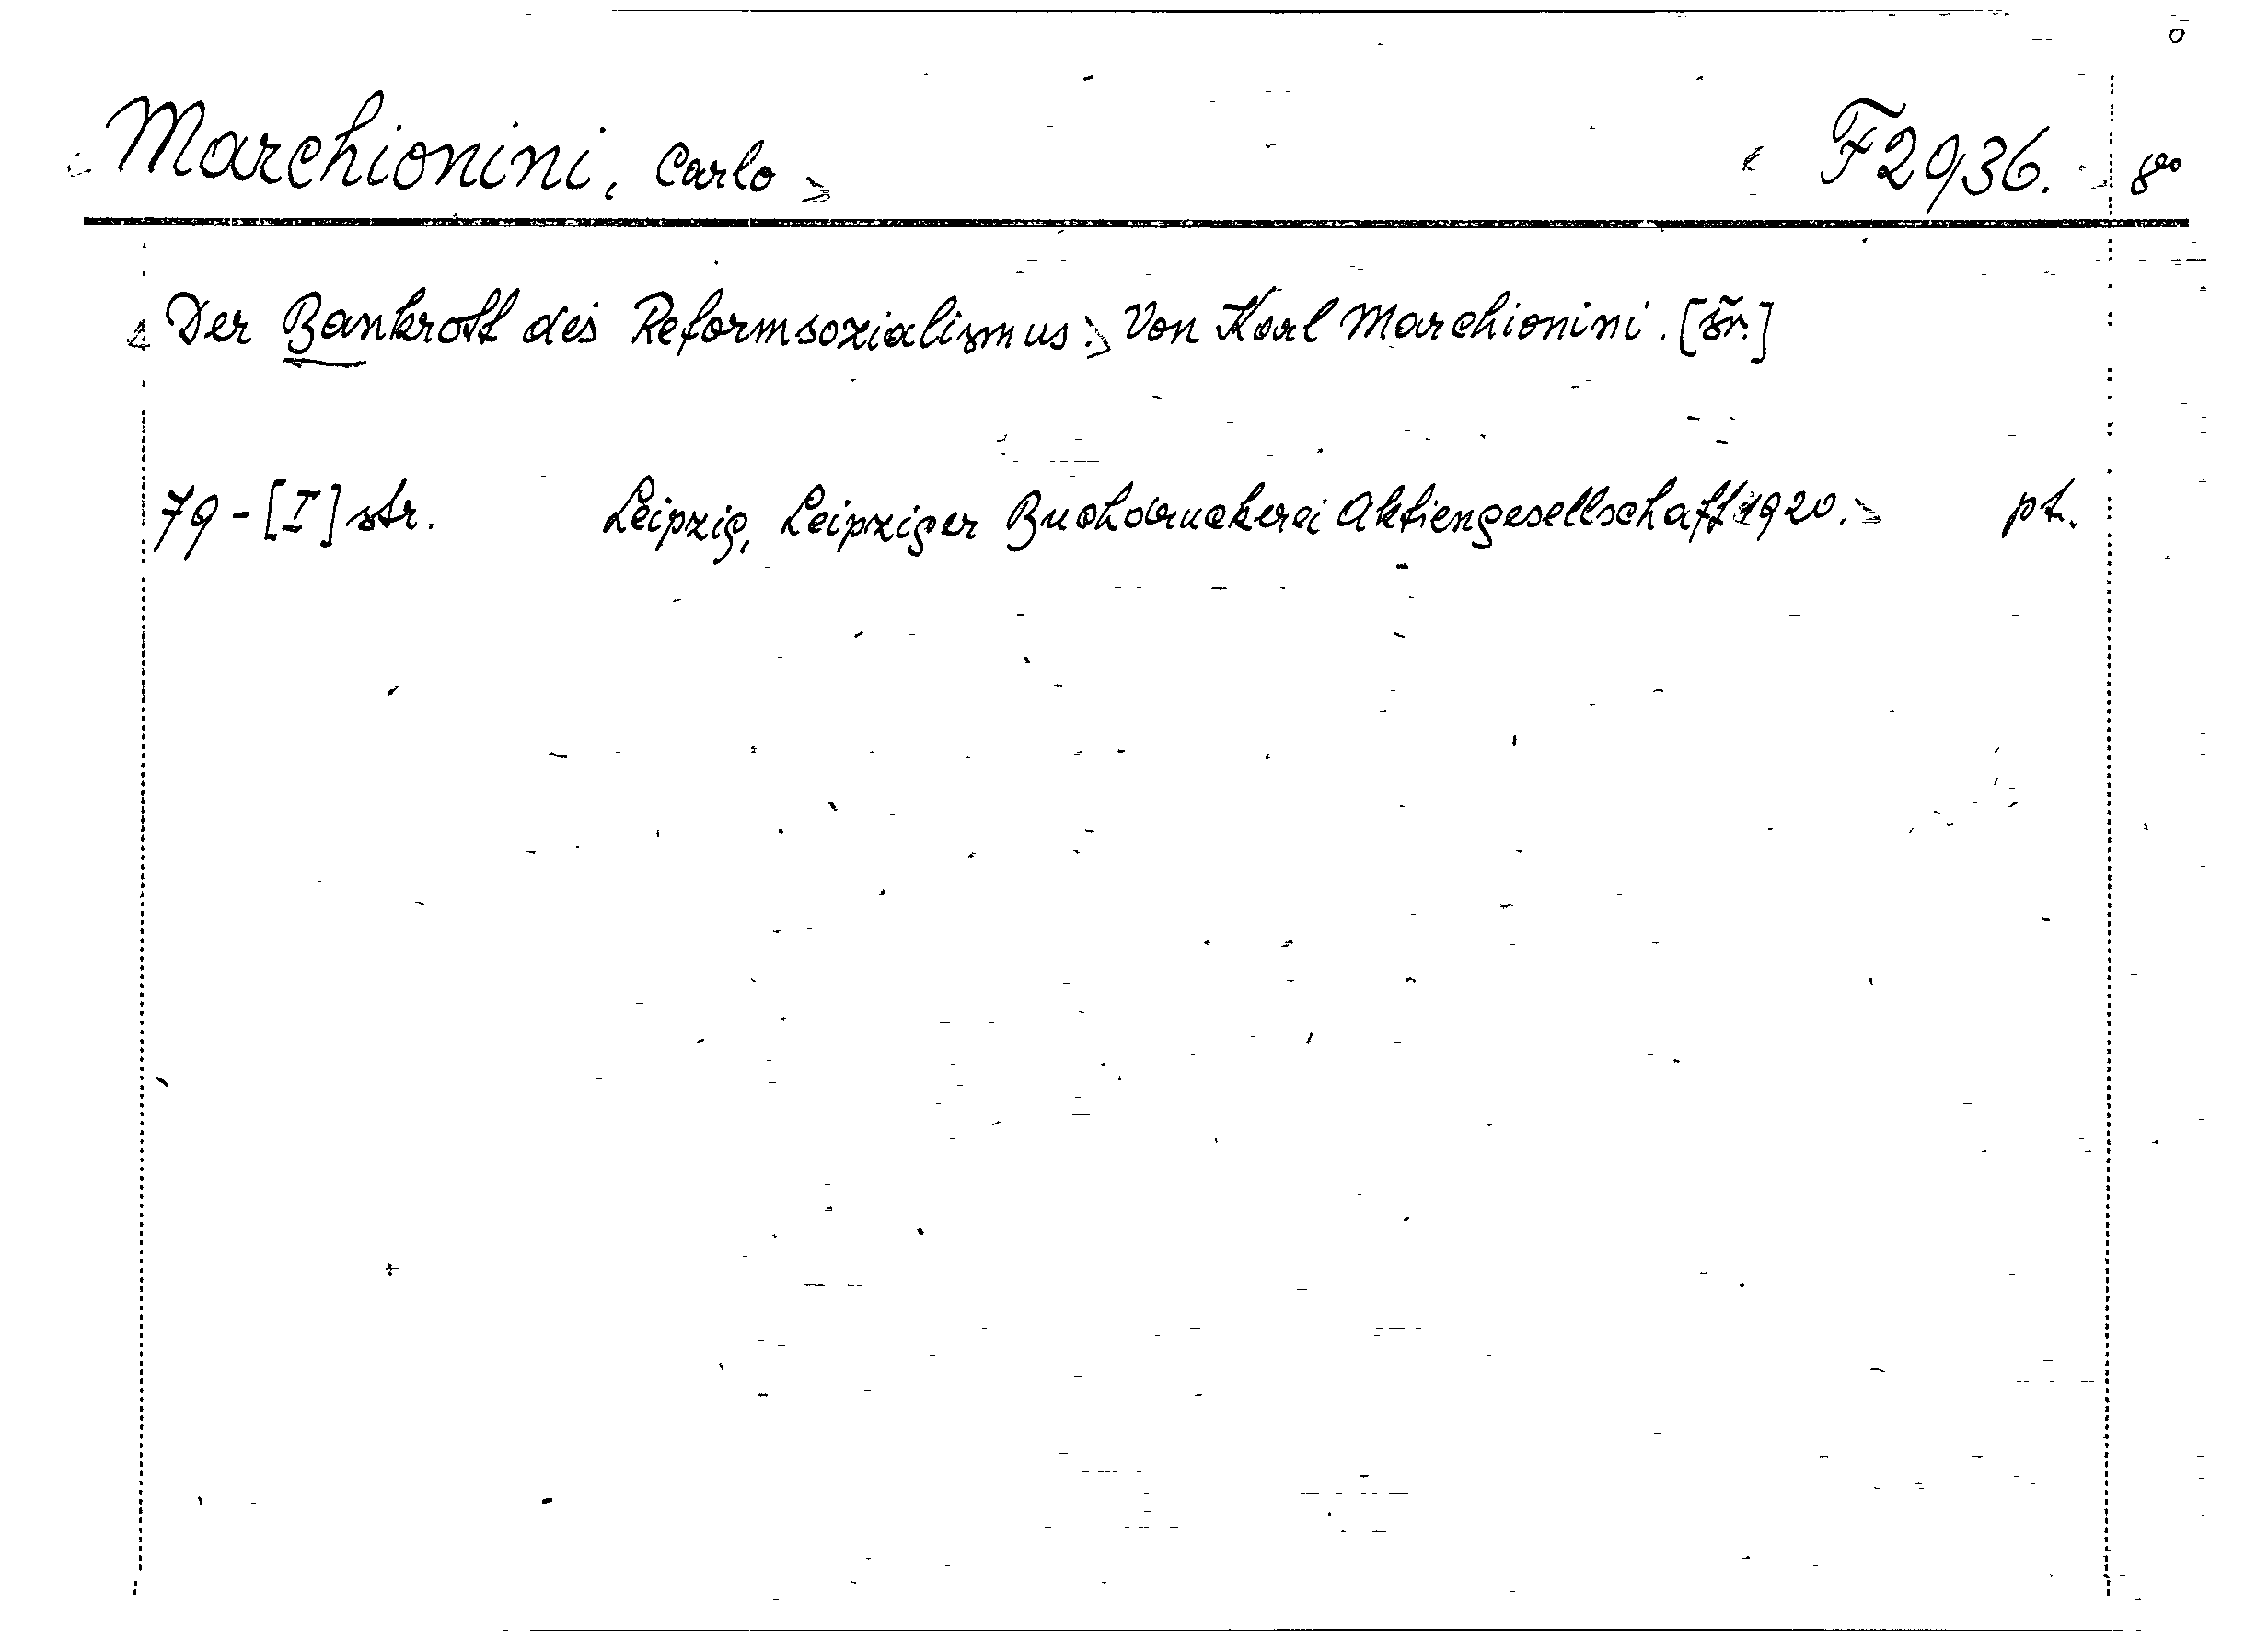 Marchionini, Carlo F 2936. 8°
Der Bankrott des Reformsozialismus. Von Karl Marchionini. [šr.]
79-[I] str. Leipzig, Leipziger Buchdruckerei Aktiengesellschaft 1920. pt.